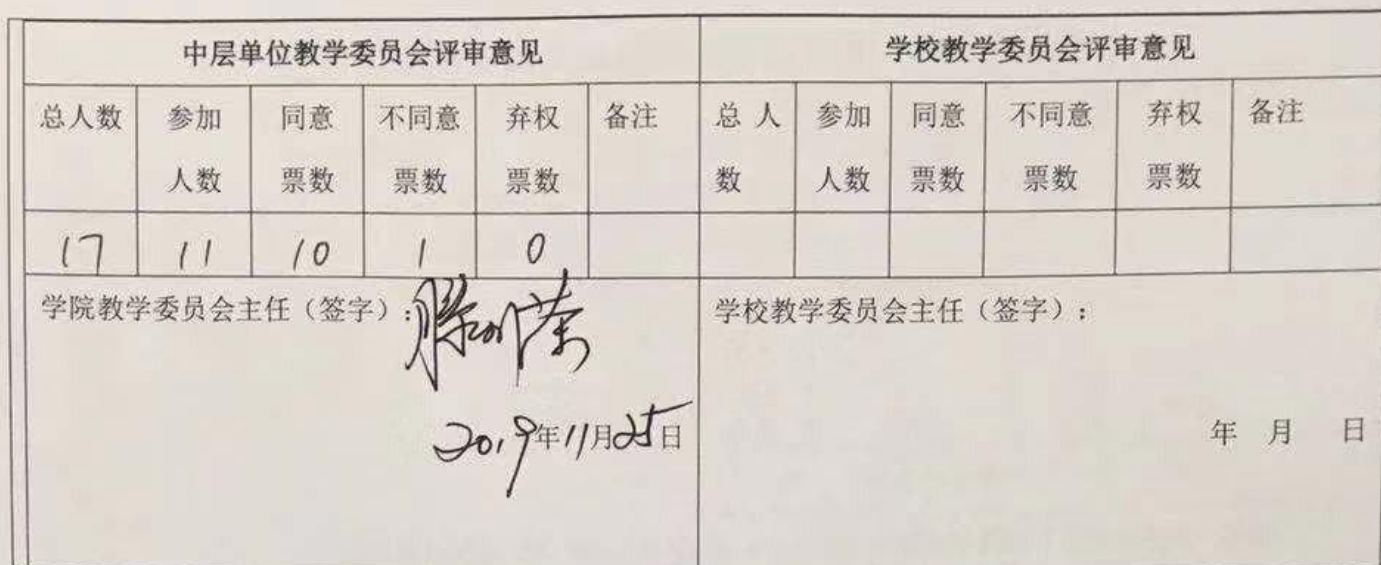 中层单位教学委员会评审意见 学校教学委员会评审意见
总人数 参加人数 同意票数 不同意票数 弃权票数 备注 总人数 参加人数 同意票数 不同意票数 弃权票数 备注
17 11 10 1 0
学院教学委员会主任（签字）： 学校教学委员会主任（签字）：
2019年11月25日 年 月 日